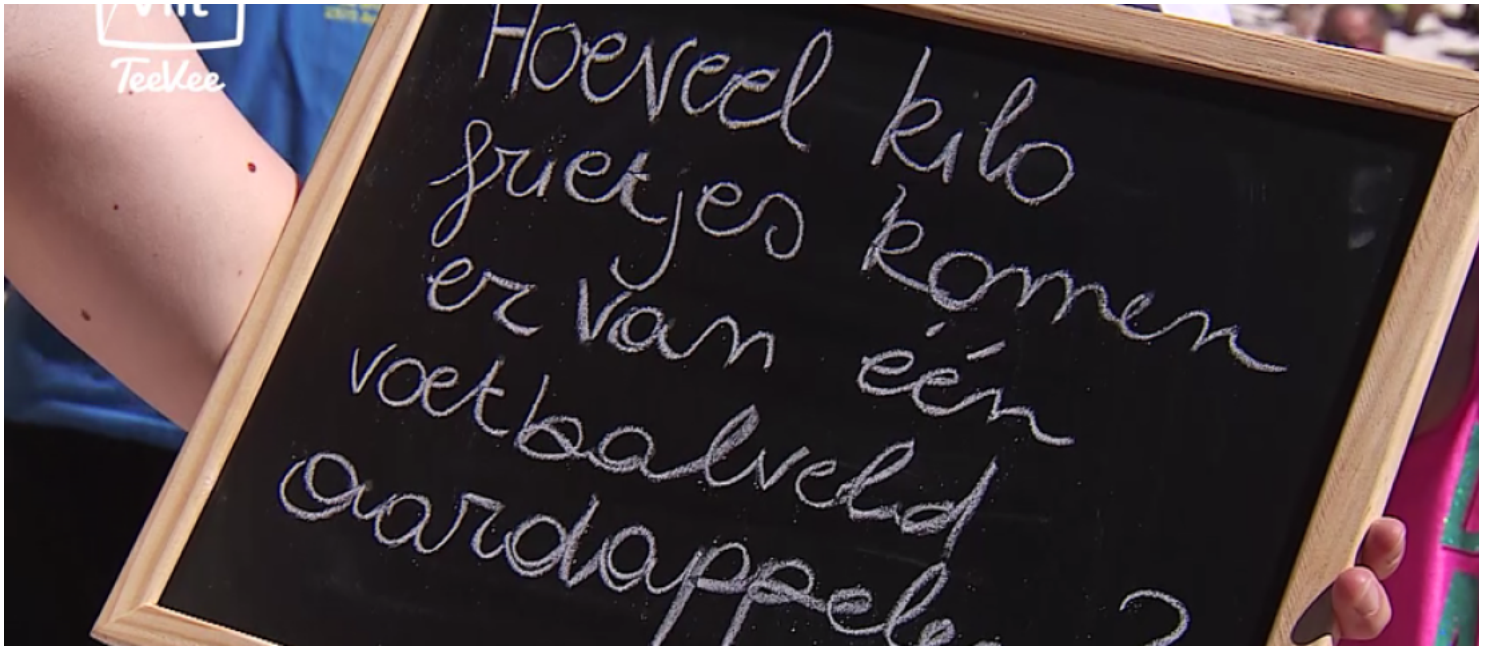 TeeVee
Hoeveel kilo
frietjes komen
er van één
voetbalveld
aardappelen?